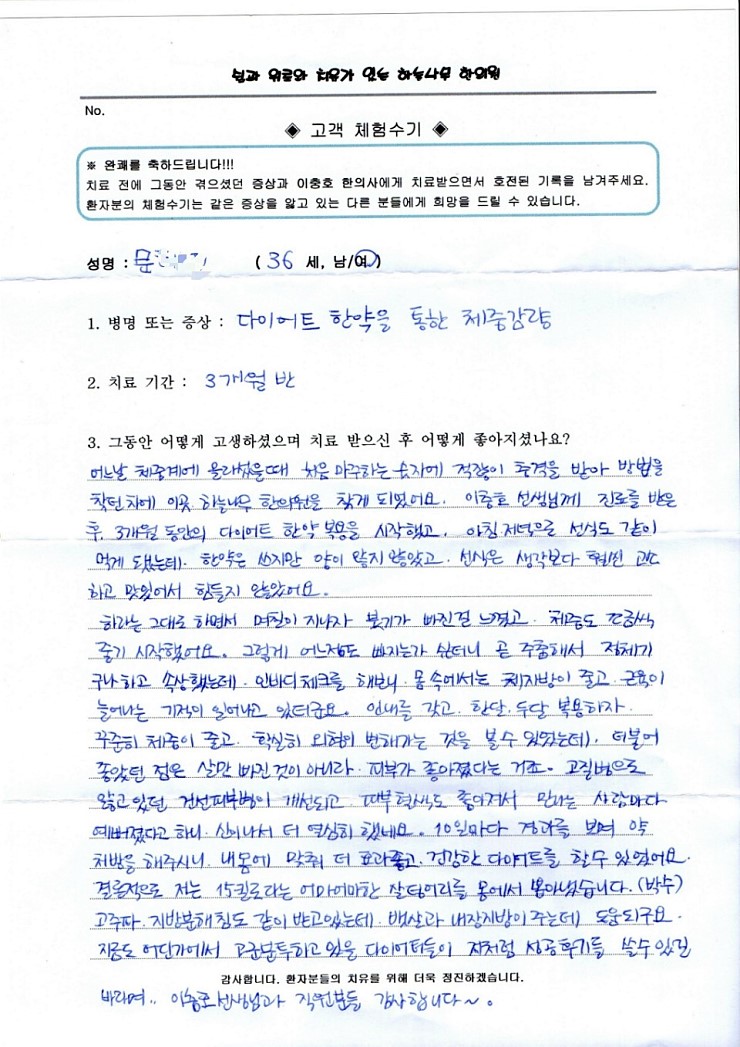 No.
◈ 고객 체험수기 ◈
※ 완쾌를 축하드립니다!!!
치료 전에 그동안 겪으셨던 증상과 이충호 한의사에게 치료받으면서 호전된 기록을 남겨주세요.
환자분의 체험수기는 같은 증상을 앓고 있는 다른 분들에게 희망을 드릴 수 있습니다.
성명 : 문 ( 36 세, 남/여 )
1. 병명 또는 증상 : 다이어트 한약을 통한 체중감량
2. 치료 기간 : 3개월 반
3. 그동안 어떻게 고생하셨으며 치료 받으신 후 어떻게 좋아지셨나요?
어느날 체중계에 올라섰을때 처음 마주하는 숫자에 적잖이 충격을 받아 방법을
찾던차에 이곳 하늘나무 한의원을 찾게 되었어요. 이충호 선생님께 진료를 받은
후, 3개월 동안의 다이어트 한약 복용을 시작했고, 아침 저녁으로 선식도 같이
먹게 됐는데, 한약은 쓰지만 양이 많지 않았고, 선식은 생각보다 훨씬 고소
하고 맛있어서 힘들지 않았어요.
하라는 그대로 하면서 며칠이 지나자 붓기가 빠진걸 느꼈고, 체중도 조금씩
줄기 시작했어요. 그렇게 어느정도 빠지는가 싶더니 곧 주춤해서 정체기
구나하고 속상했는데, 인바디체크를 해보니, 몸 속에서는 체지방이 줄고, 근육이
늘어나는 기적이 일어나고 있더군요. 인내를 갖고, 한달, 두달 복용하자,
꾸준히 체중이 줄고, 확실히 외형이 변해가는 것을 볼수 있었는데, 더불어
좋았던 점은 살만 빠진것이 아니라, 피부가 좋아졌다는 거죠. 고질병으로
앓고 있던 건선피부병이 개선되고, 피부 혈색도 좋아져서 만나는 사람마다
예뻐졌다고 하니, 신이나서 더 열심히 했네요. 10일마다 경과를 보며 약
처방을 해주시니, 내 몸에 맞춰 더 효과좋고, 건강한 다이어트를 할수 있었어요.
결론적으로 저는 15킬로라는 어마어마한 살덩어리를 몸에서 뽑아냈습니다. (박수)
고주파, 지방분해침도 같이 받고있는데, 뱃살과 내장지방이 주는데 도움되구요.
지금도 어딘가에서 고군분투하고 있을 다이어터들이 저처럼 성공후기를 쓸수 있길
감사합니다. 환자분들의 치유를 위해 더욱 정진하겠습니다.
바라며.. 이충호선생님과 직원분들 감사합니다~.